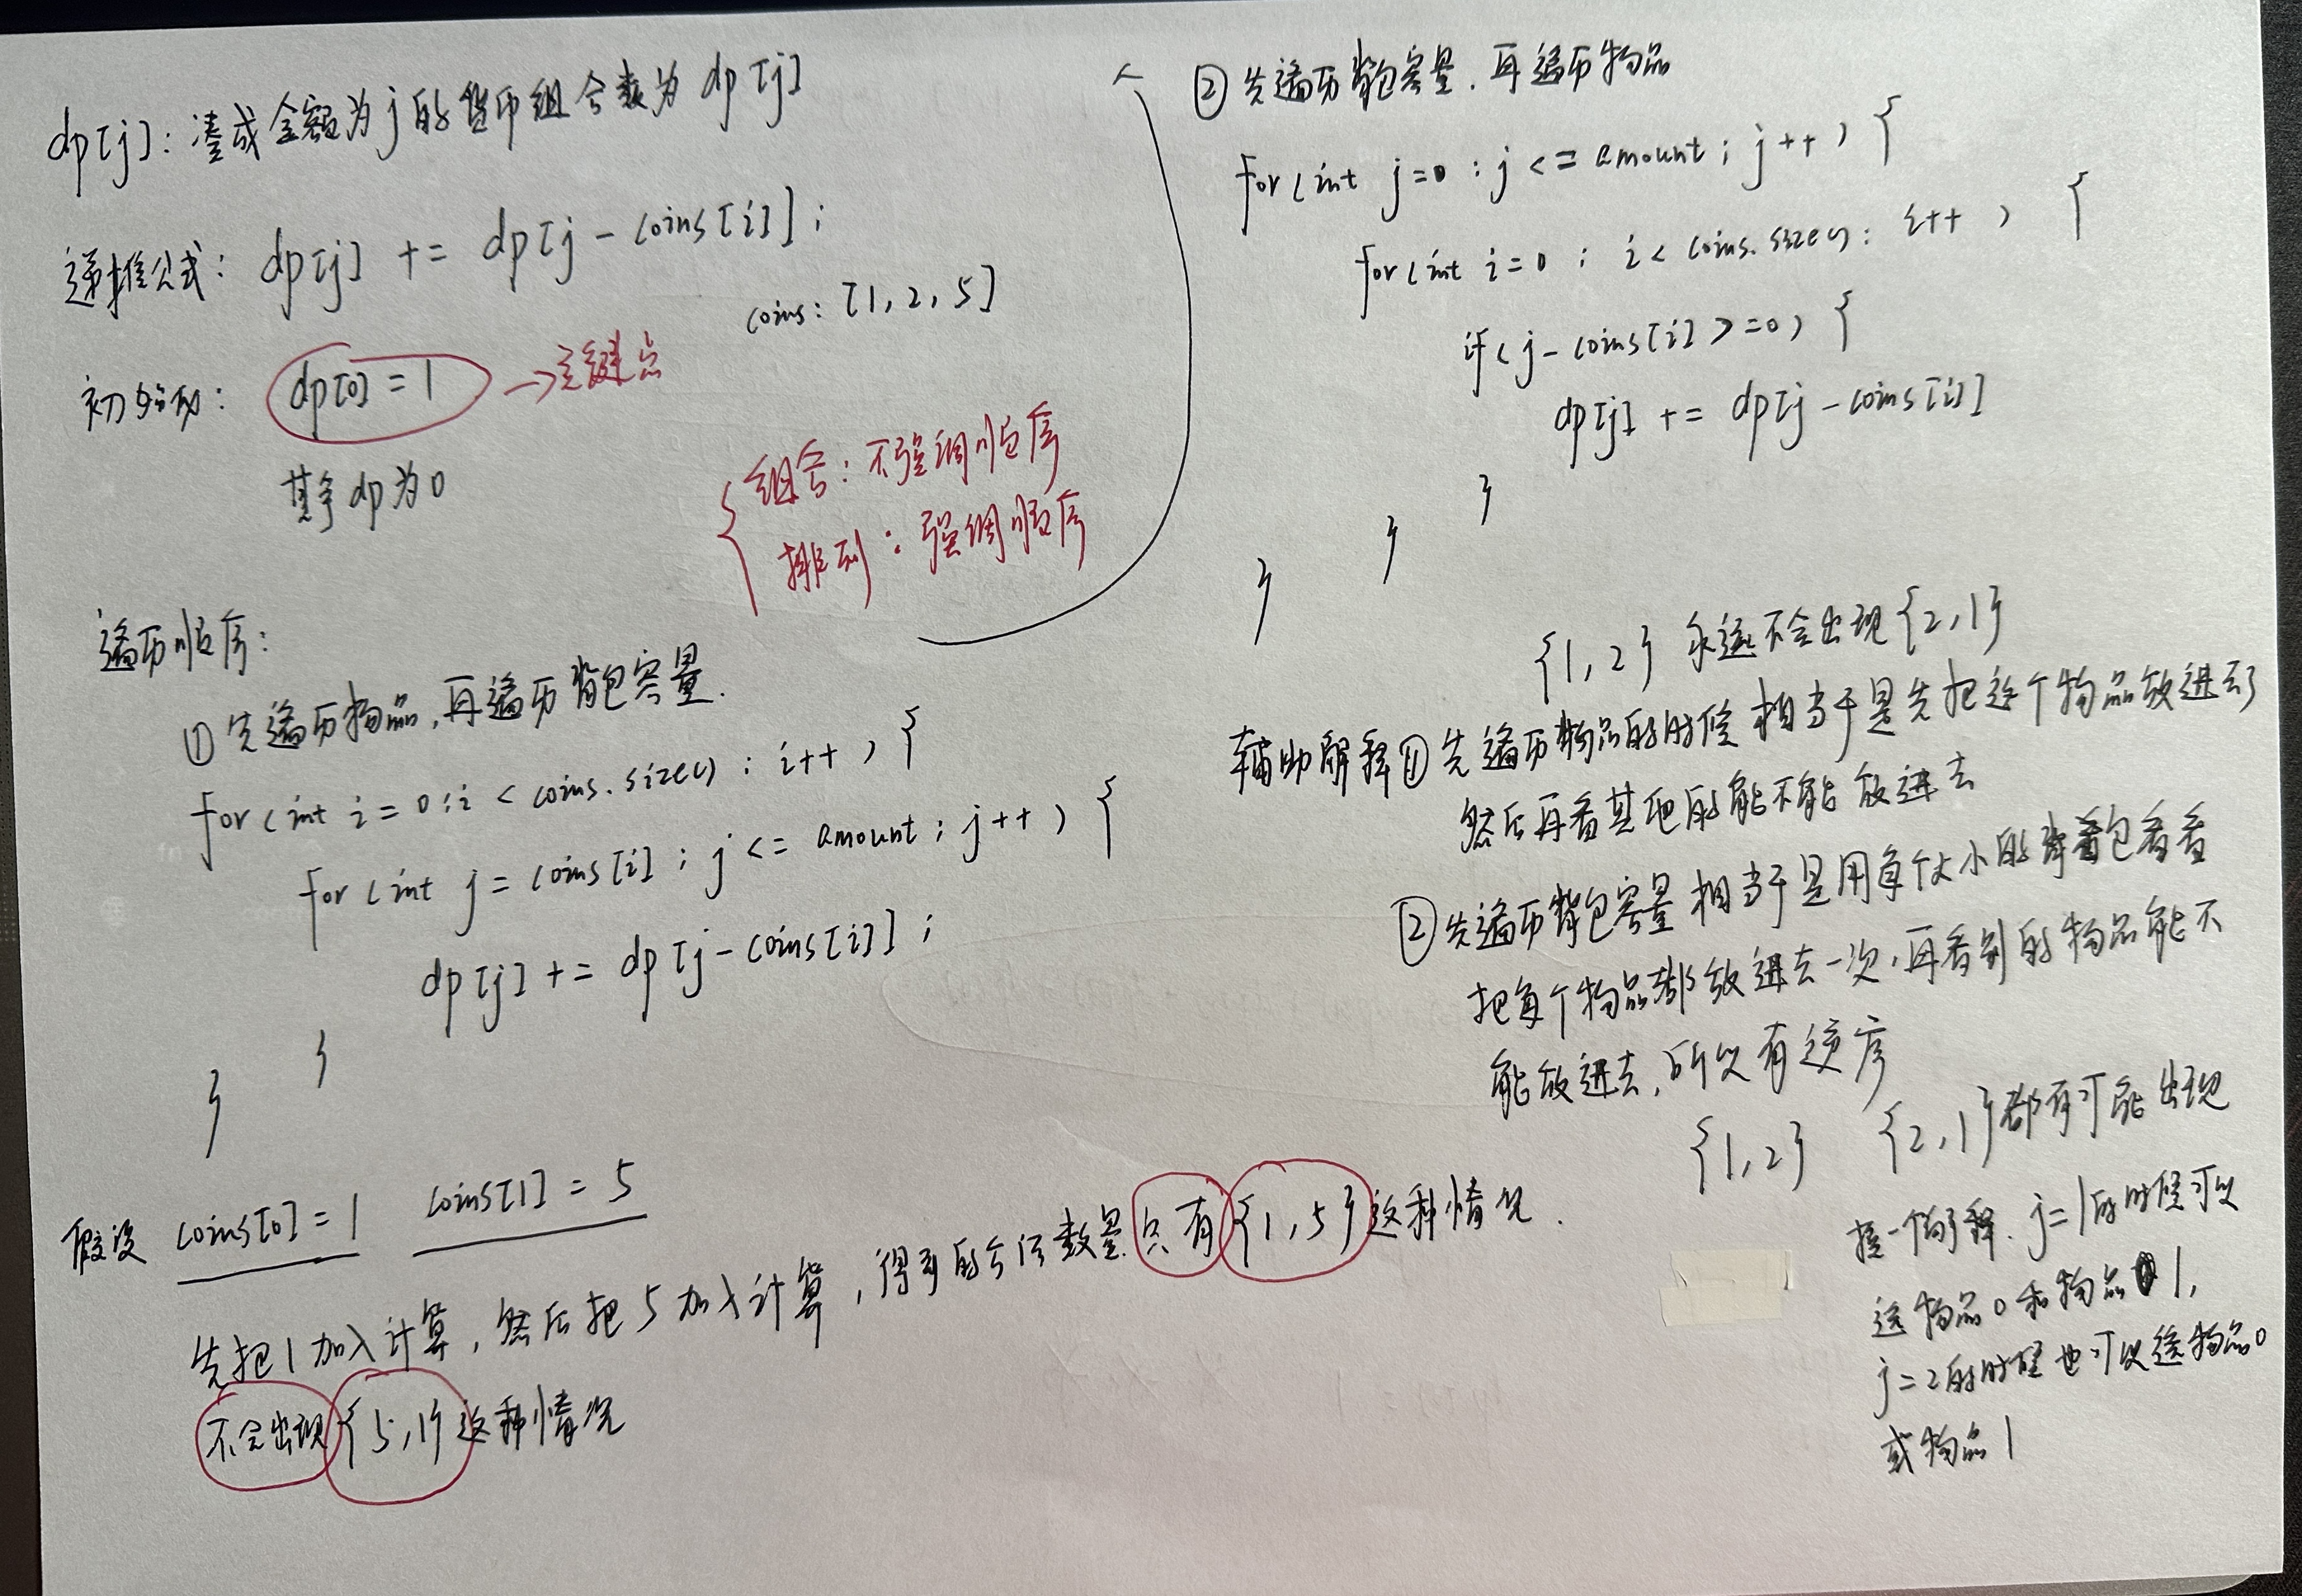 dp[j]: 凑成金额为j的货币组合数为 dp[j]
递推公式: dp[j] += dp[j - coins[i]];
coins: [1, 2, 5]
初始化: dp[0] = 1 → 关键点
其余 dp 为 0
{ 组合: 不强调顺序
排列: 强调顺序
遍历顺序:
① 先遍历物品, 再遍历背包容量.
for (int i = 0; i < coins.size(); i++) {
for (int j = coins[i]; j <= amount; j++) {
dp[j] += dp[j - coins[i]];
}
}
假设 coins[0] = 1 coins[1] = 5
先把1加入计算, 然后把5加入计算, 得到的方法数量只有{1, 5}这种情况.
不会出现{5, 1}这种情况
② 先遍历背包容量. 再遍历物品
for (int j=0; j <= amount; j++) {
for (int i=0; i < coins.size(); i++) {
if (j - coins[i] >= 0) {
dp[j] += dp[j - coins[i]]
}
}
}
{1, 2} 永远不会出现 {2, 1}
辅助解释 ① 先遍历物品的时候 相当于是先把这个物品放进去了
然后再看其他的能不能放进去
② 先遍历背包容量 相当于是用每个大小的背包看看
把每个物品都放进去一次, 再看别的物品能不
能放进去, 所以有逆序
{1, 2} {2, 1}都有可能出现
换一个解释. j=1的时候可以
选物品0和物品1,
j=2的时候也可以选物品0
或物品1